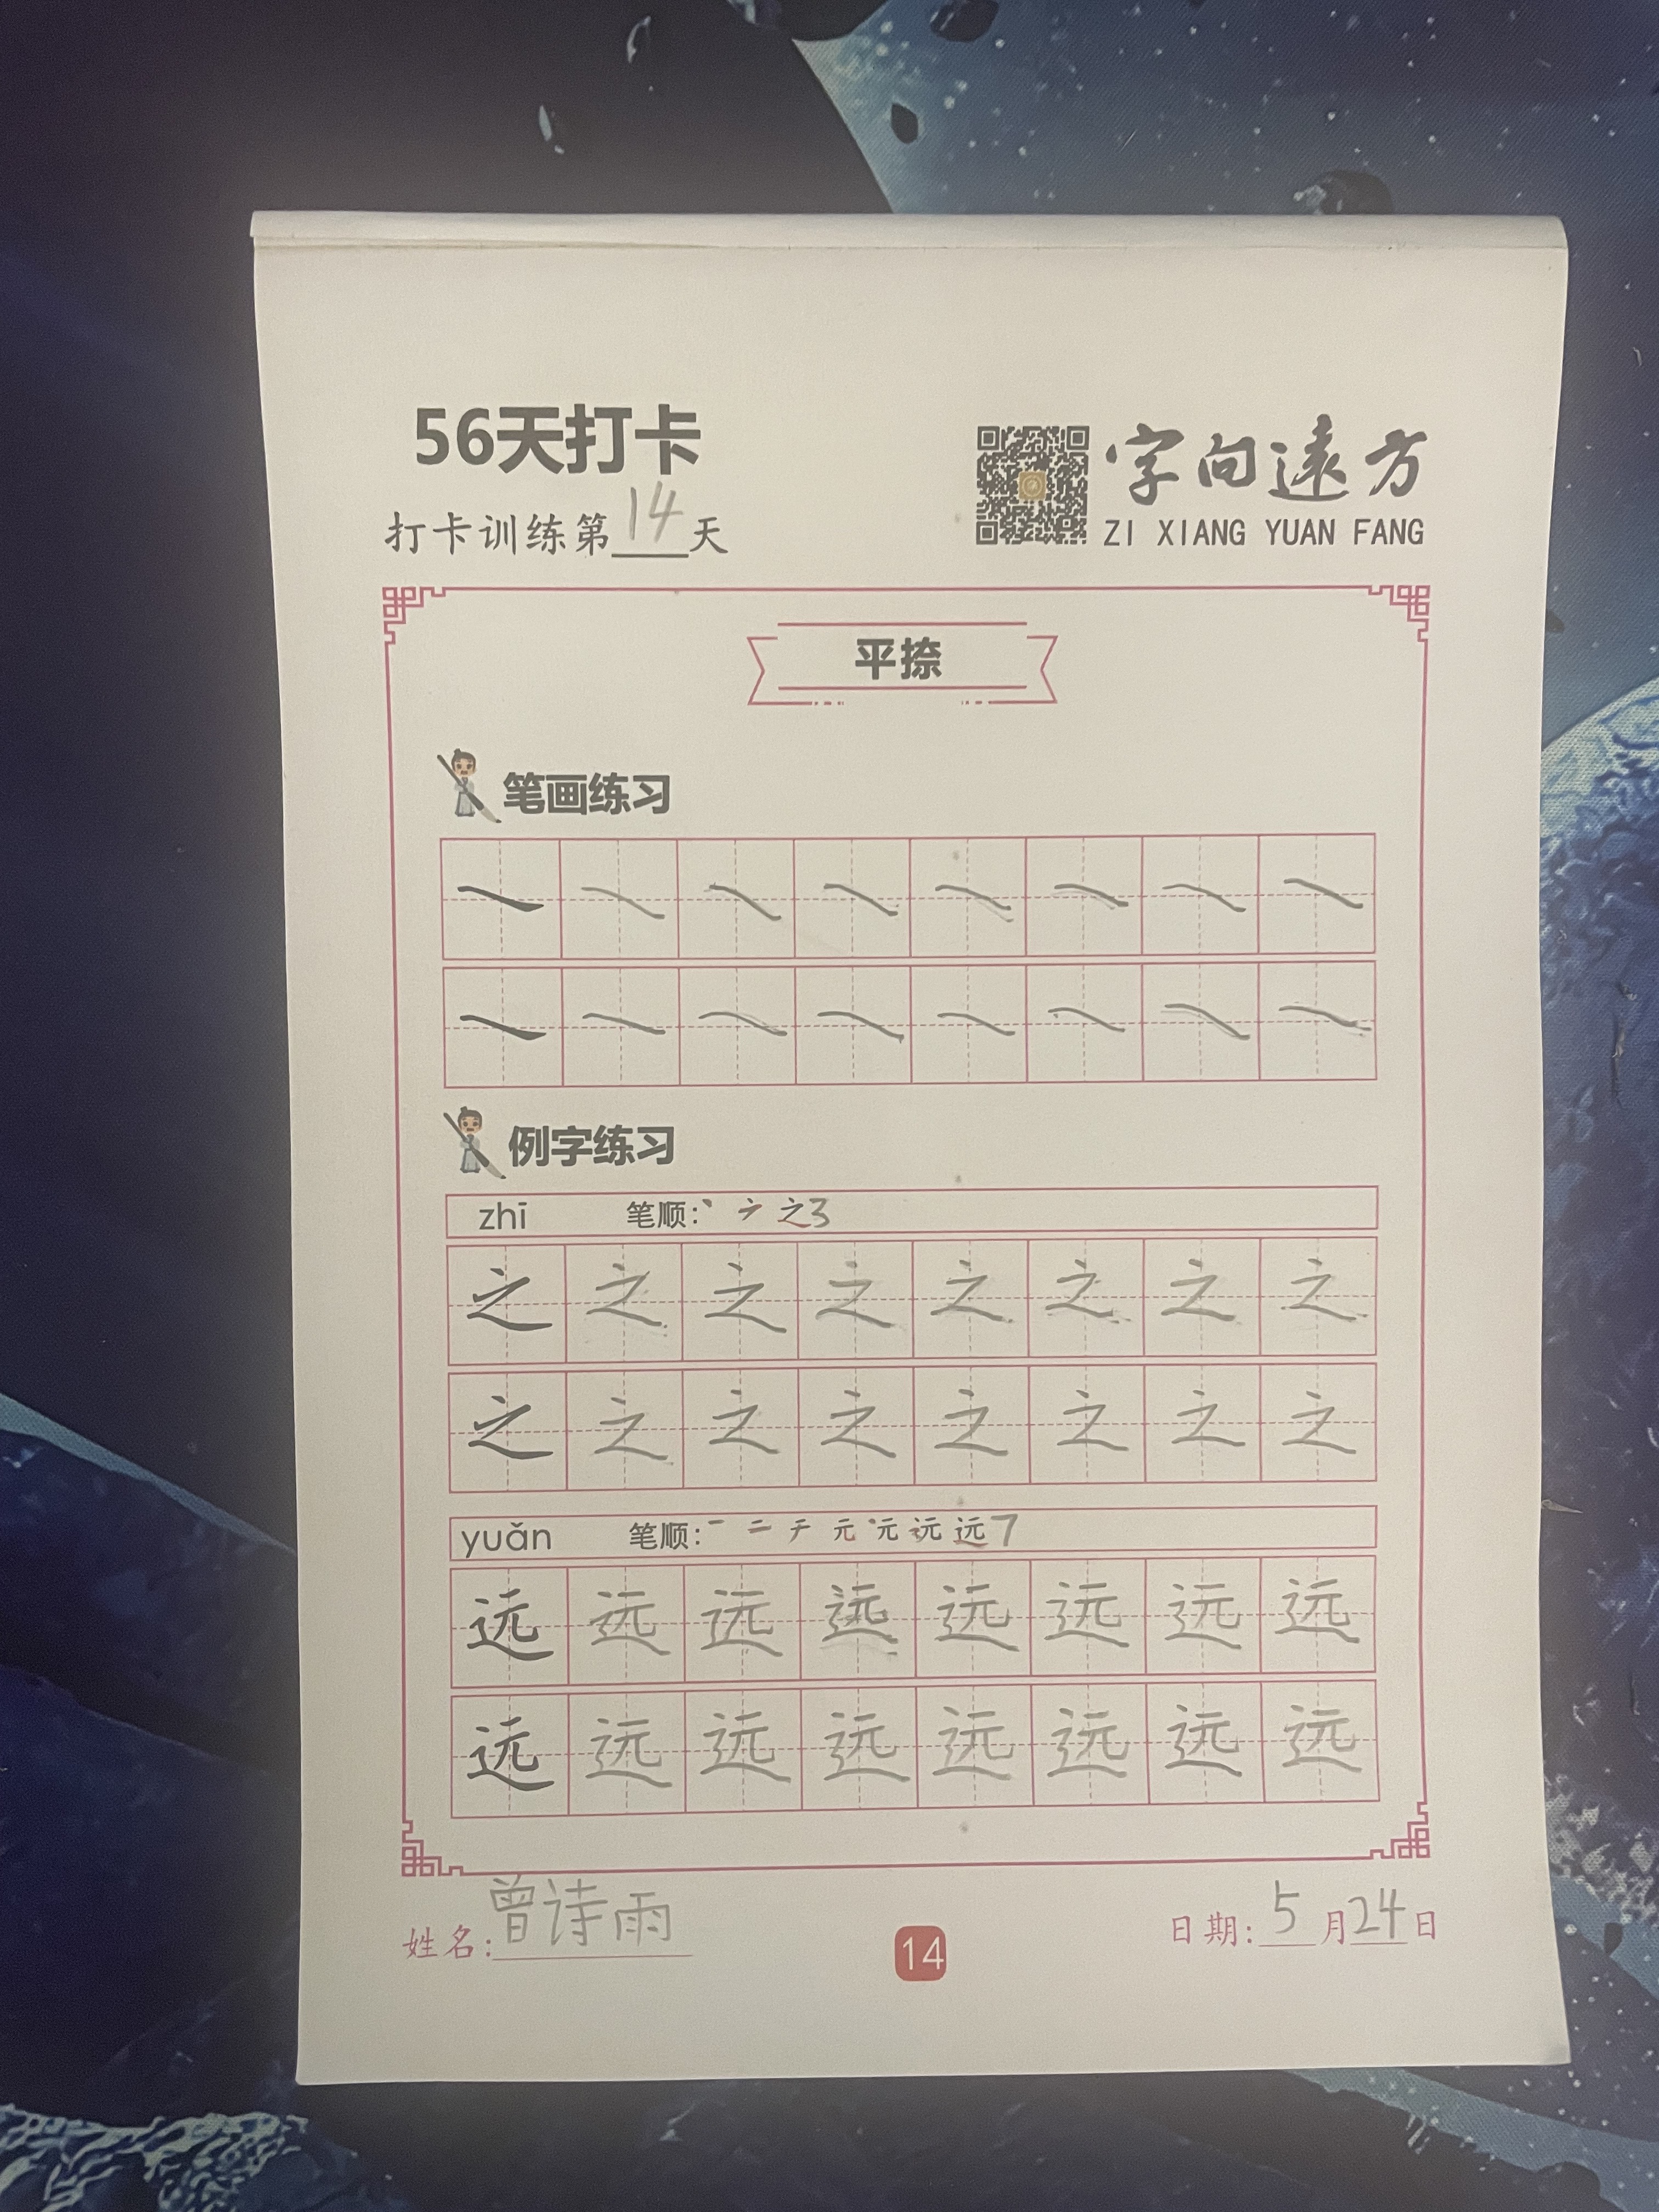 56天打卡
字向遠方
打卡训练第14天
ZI XIANG YUAN FANG
平捺
笔画练习
㇏ ㇏ ㇏ ㇏ ㇏ ㇏ ㇏ ㇏
㇏ ㇏ ㇏ ㇏ ㇏ ㇏ ㇏ ㇏
例字练习
zhī 笔顺: 丶 之3
之 之 之 之 之 之 之 之
之 之 之 之 之 之 之 之
yuǎn 笔顺: 一 二 元 远7
远 远 远 远 远 远 远 远
远 远 远 远 远 远 远 远
姓名: 曾诗雨
14
日期: 5月24日